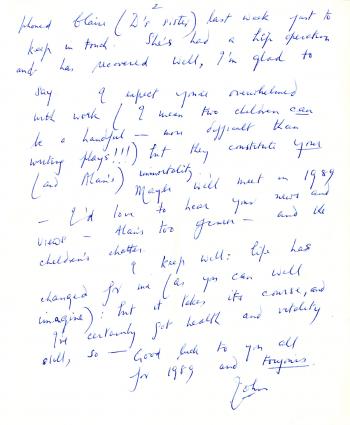 2
phoned Claire (D's sister) last week just to
keep in touch. She's had a hip operation
and has recovered well, I'm glad to
say. I expect you're overwhelmed
with work (I mean two children can
be a handful — more difficult than
writing plays!!!) but they constitute your
(and Alain's) immortality.
Maybe we'll meet in 1989
— I'd love to hear your news and
views — Alain's too of course — and the
children's chatter.
I keep well: life has
changed for me (as you can well
imagine): but it takes its course, and
I've certainly got health and vitality
still, so — Good luck to you all
for 1989 and toujours.
John